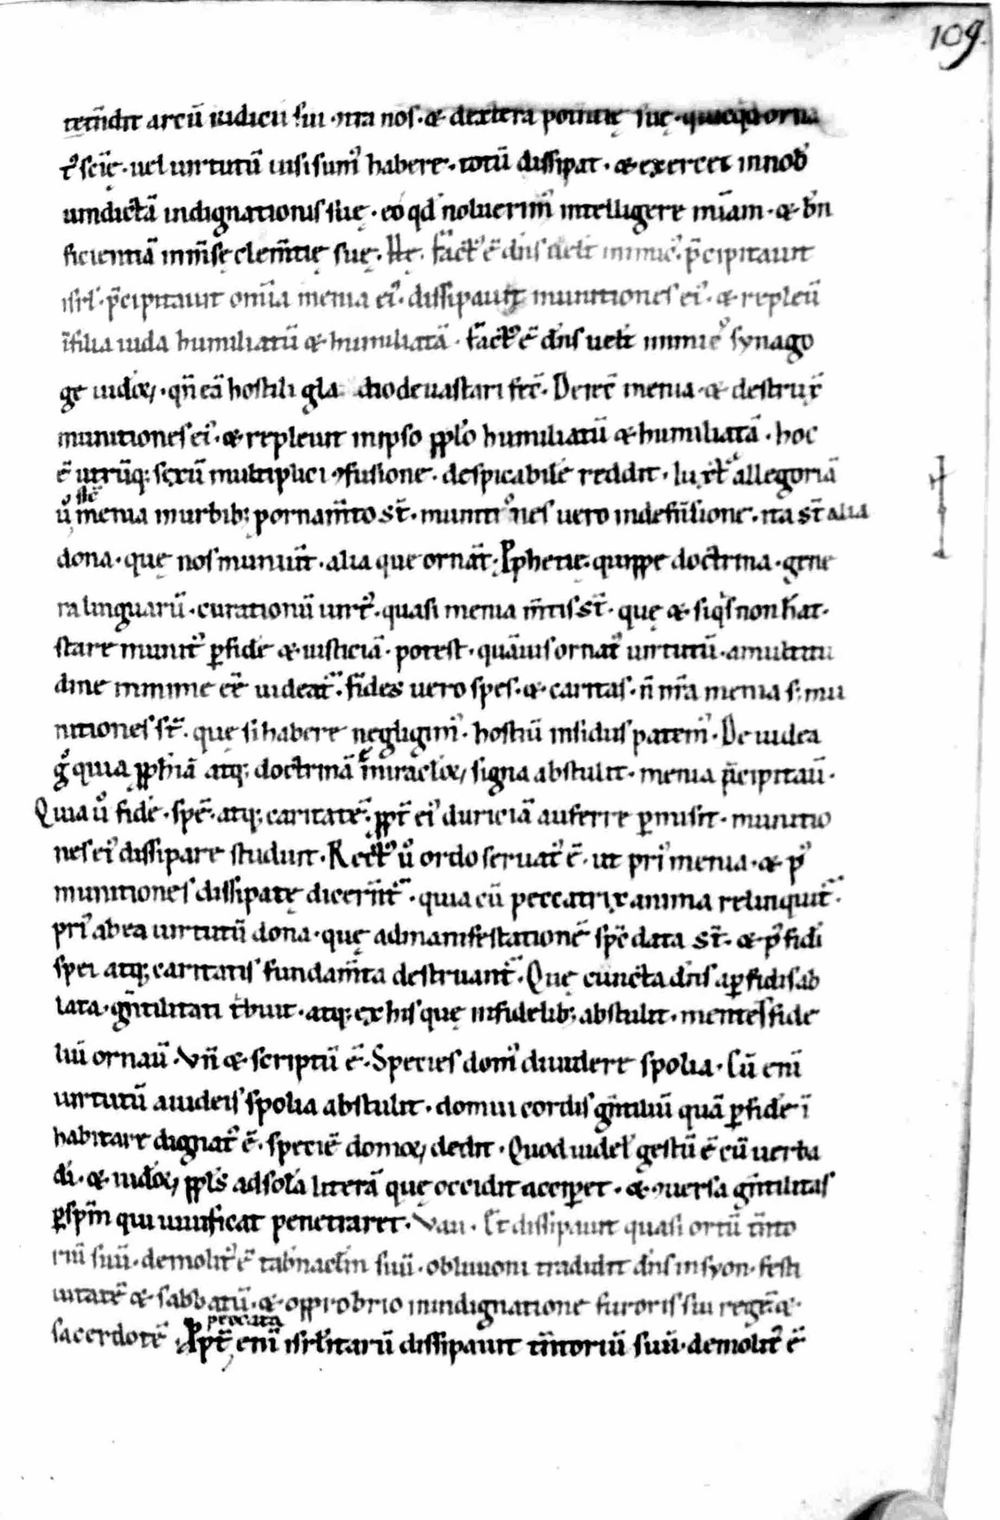 109.
tetẽdit arcũ iudicii sui · ĩtra nos · & dextera potentię suę · quicq̃d orna
t᷒ sciẽ · uel uirtutũ uisi sum᷒ habere · totũ dissipat · & exercet in nob᷒
uindictã indignationis suę · eo qđ noluerim᷒ intelligere m̃iam · & bñ
ficientiã inm̃sę clem̃tię suę · Ħe · fact᷒ ẽ dñs uelut inimic᷒ · p̃cipitauit
isrł · p̃cipitauit om̃ia menia ei᷒ · dissipauit munitiones ei᷒ · & repleũ
ĩ filia iuda humiliatũ & humiliatã · fact᷒ ẽ dñs uelut inimic᷒ synago
gę iudeoꝝ · qñ eã hostili gladio deuastari fec̃ · Deiec̃ menia · & destrux̃
munitiones ei᷒ · & repleuit in ipso pp̃lo humiliatũ & humiliatã · hoc
ẽ utrũq; sexũ multiplici ꝯfusione · despicabilẽ reddit · Iuxt᷒ allegoriã
ů menia in urbib; p ornam̃to st̃ · munitiones uero in defẽsione · ita st̃ alia
stẽ
dona · quę nos muniũt · alia que ornãt · Ꝓphetię quippe doctrina · gene
ra linguarũ · curationũ uirt᷒ · quasi menia m̃tis st̃ · quę & siq̃s non h̃at ·
stare munit᷒ ꝑ fidẽ & iusticiã · potest · quãuis ornat᷒ uirtutũ · a multitu
dine minime ee᷒ uideat᷒ · fides uero spes · & caritas · ñ nr̃a menia s; mu
nitiones st̃ · que si habere negligim᷒ · hostiũ insidiis patem᷒ · De iudea
g̊ quia ꝓph̃iã atq; doctrinã & miraculoꝝ signa abstulit · menia p̃cipitaũ ·
Quia ů fidẽ · spẽ · atq; caritatẽ · ꝓpt̃ ei᷒ duriciã auferre ꝑmisit · munitio
nes ei᷒ dissipare studuit · Rect᷒ ů ordo seruat᷒ ẽ · ut pri᷒ menia · & p᷒
munitiones dissipatę dicer̃nt᷒ · quia cũ peccatrix anima relinquit᷒ ·
pri᷒ ab ea uirtutũ dona · quę ad manifestationẽ sp̃c data st̃ · & p᷒ fidi
spei atq; caritatis fundam̃ta destruant᷒ · Quę cuncta dñs a ꝑfidis ab
lata · g̃ntilitati tb̃uit · atq; ex his quę infidelib; abstulit · mentes fide
liũ ornaũ · Vñ & scriptũ ẽ · Species dom᷒ diuidere spolia · Cũ eni᷒
uirtutũ a iudeis spolia abstulit · domui cordis g̃ntiliũ quã ꝑ fidẽ ĩ
habitare dignat᷒ ẽ · speciẽ domoꝝ dedit · Quod uideł gestũ ẽ cũ uerba
di · & iudeoꝝ pp̃ls ad solã literã quę occidit acciperet · & ꝯuersa g̃ntilitas
ꝑ sp̃m qui uiuificat penetraret · Vau · Et dissipauit quasi ortũ t̃nto
riũ suũ · demolit᷒ ẽ tab̃naclm̃ suũ · obliuioni tradidit dñs in syon · festi
uitatẽ & sabbatũ · & opprobrio in indignatione furoris sui regẽ &
sacerdotẽ · Ꝓpt̃ peccata enĩ isrł̃itarũ dissipauit t̃ntoriũ suũ · demolit᷒ ẽ